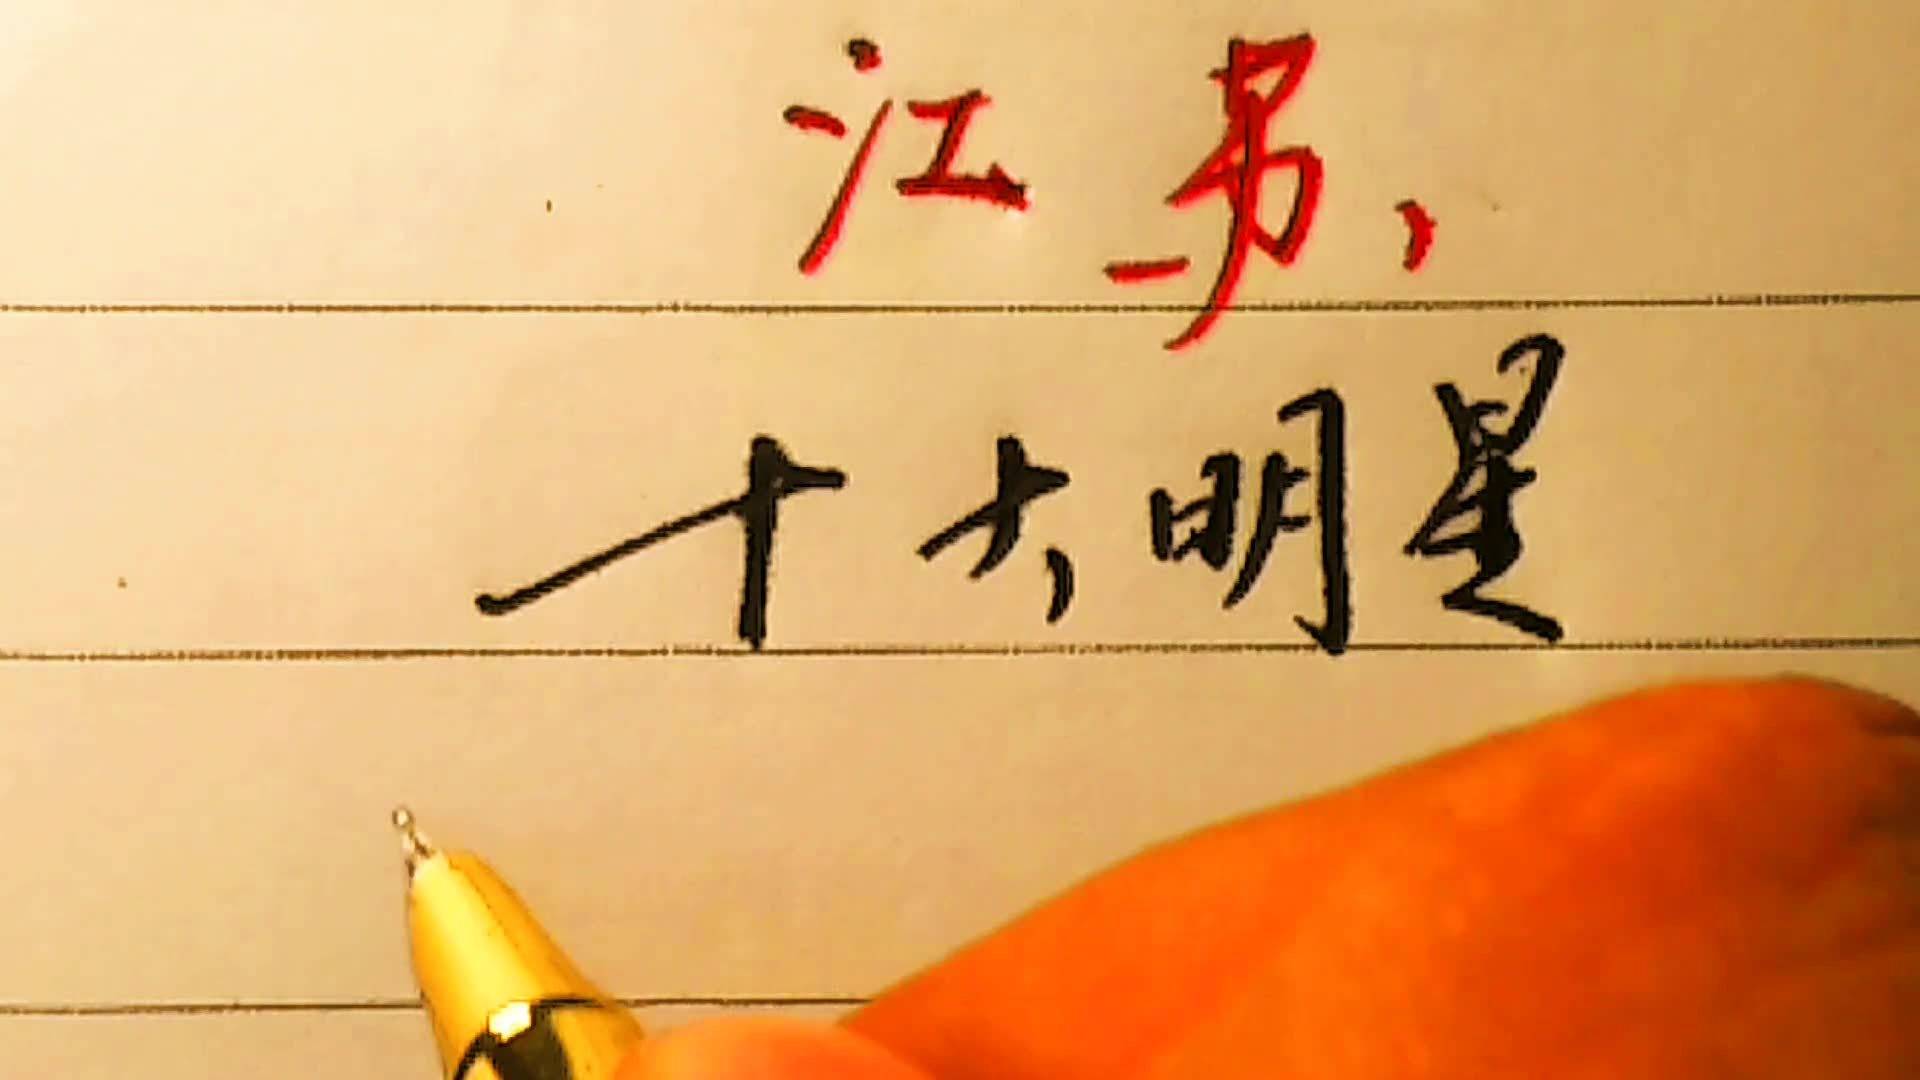 江苏
十大明星